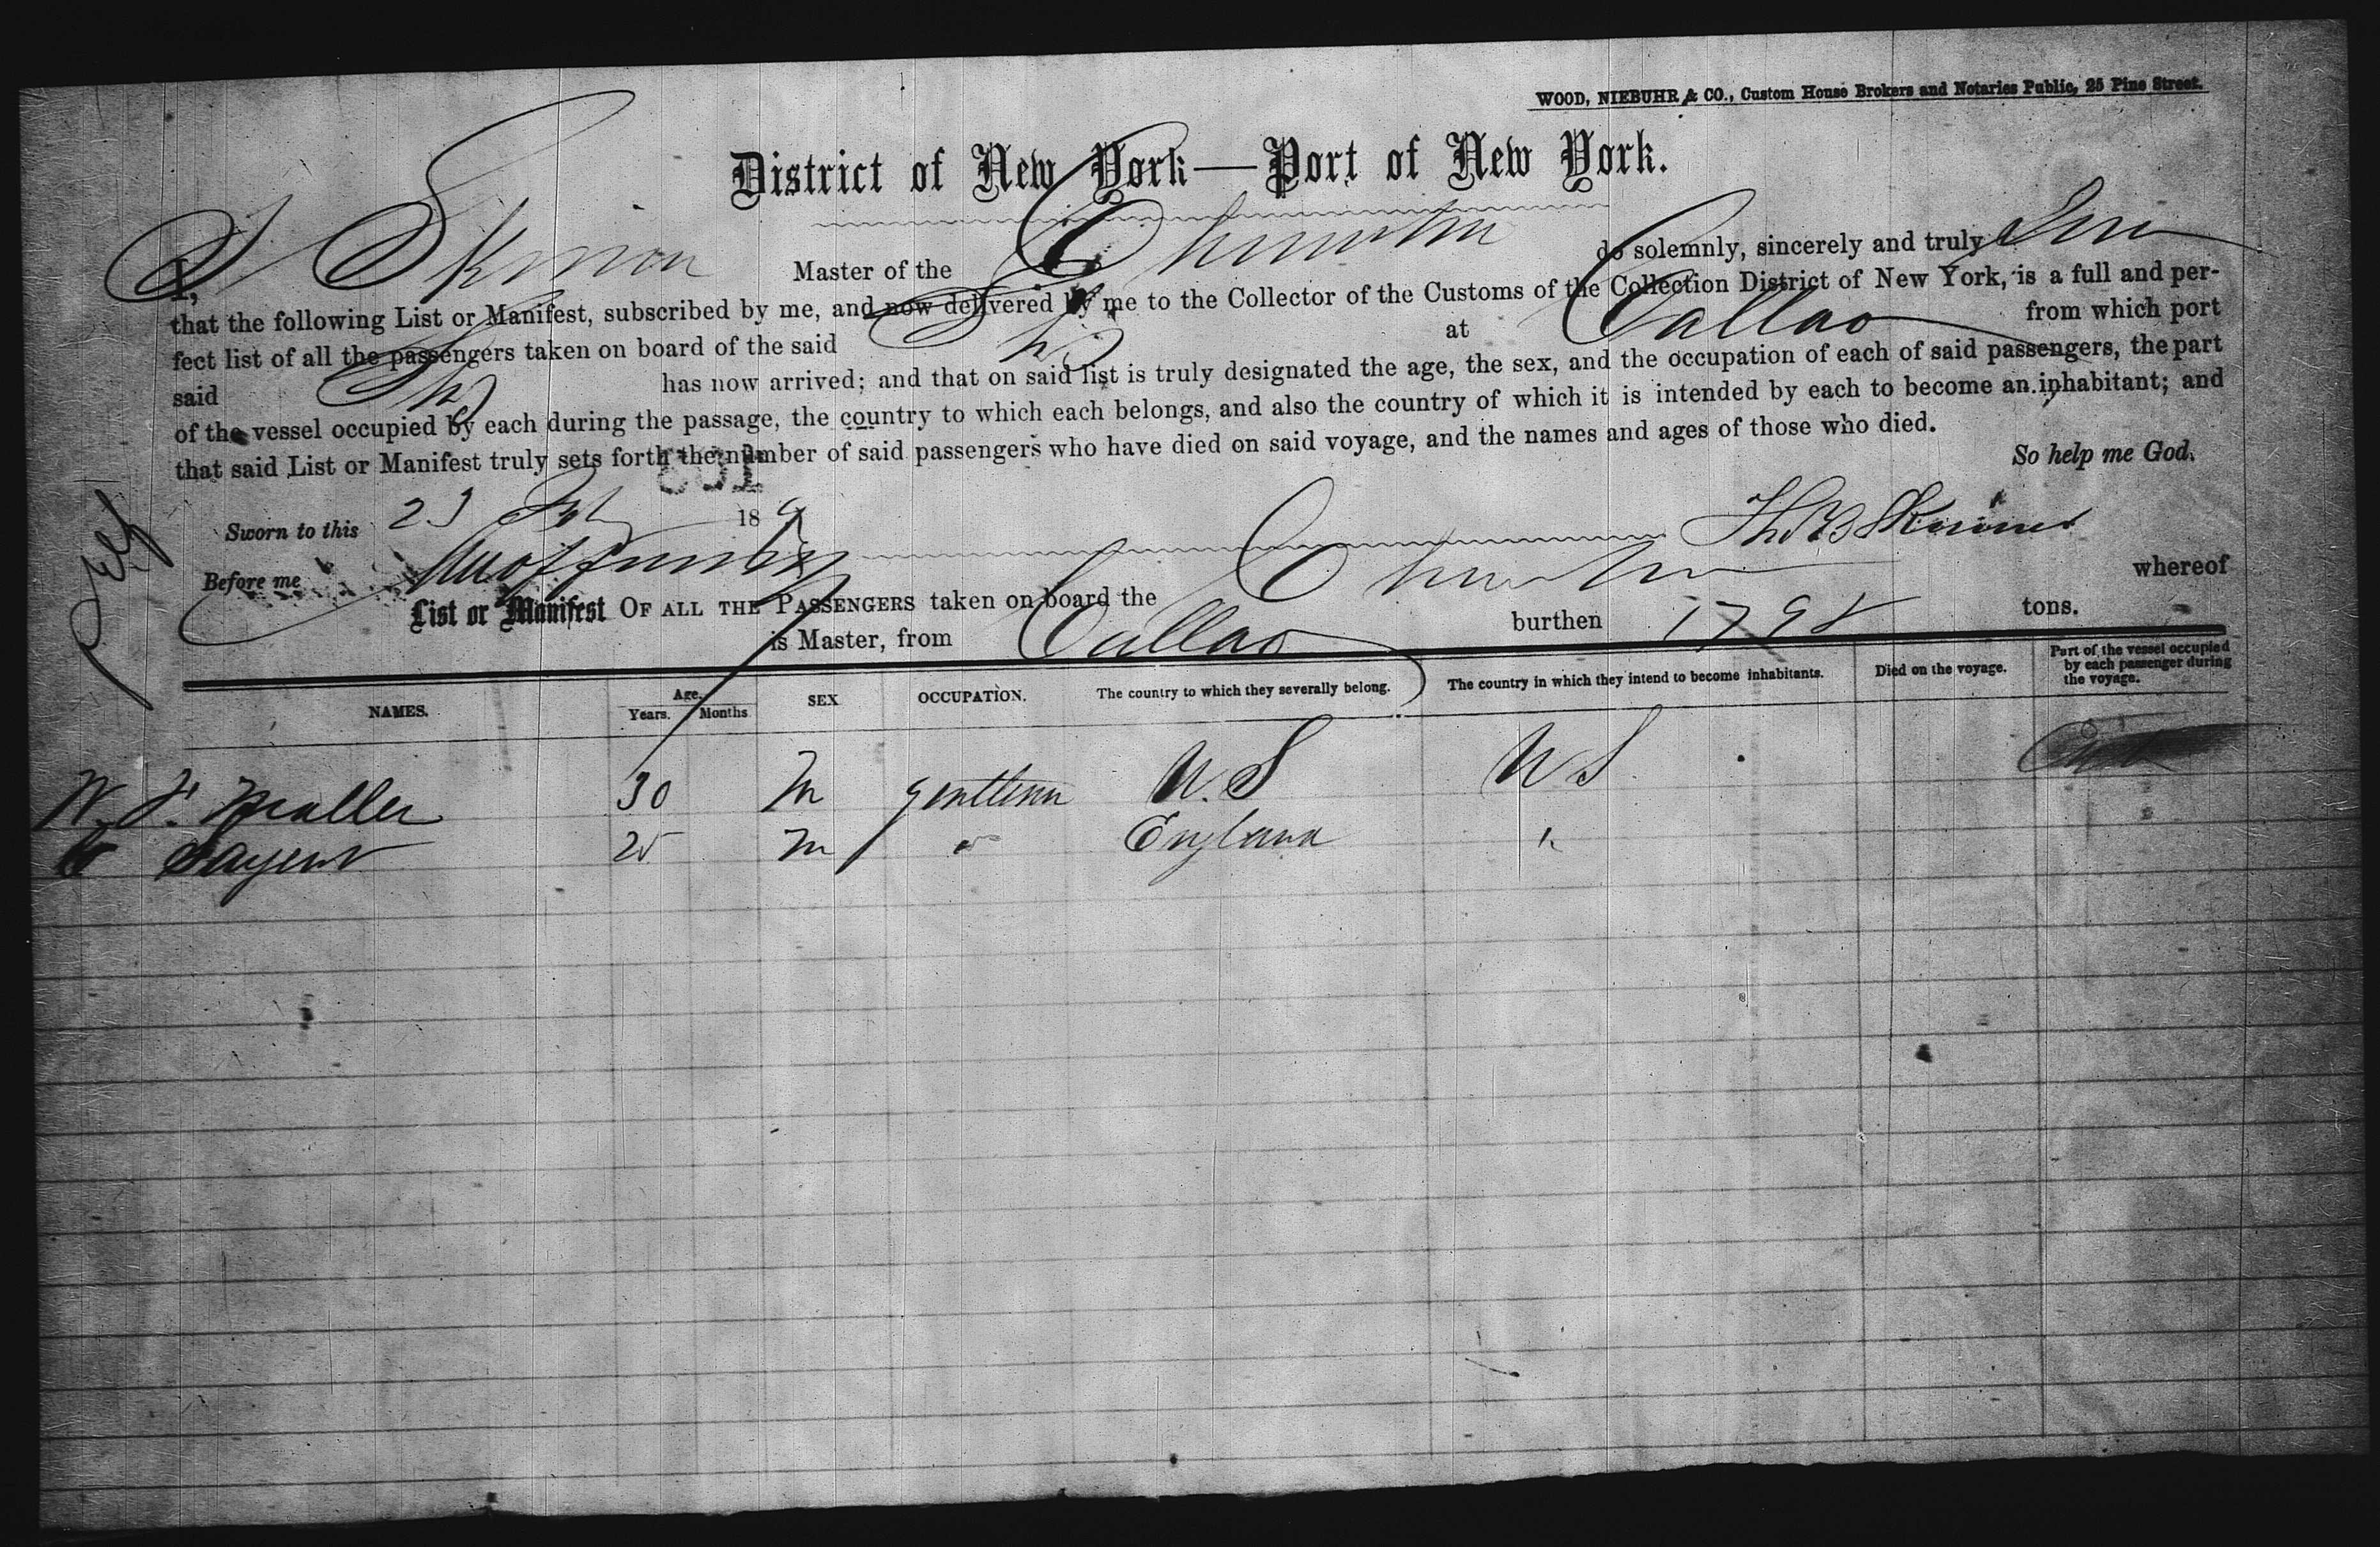 WOOD, NIEBUHR & CO., Custom House Brokers and Notaries Public, 25 Pine Street.
District of New York—Port of New York.
I, Master of the do solemnly, sincerely and truly
that the following List or Manifest, subscribed by me, and now delivered by me to the Collector of the Customs of the Collection District of New York, is a full and per-
fect list of all the passengers taken on board of the said at Callao from which port
said has now arrived; and that on said list is truly designated the age, the sex, and the occupation of each of said passengers, the part
of the vessel occupied by each during the passage, the country to which each belongs, and also the country of which it is intended by each to become an inhabitant; and
that said List or Manifest truly sets forth the number of said passengers who have died on said voyage, and the names and ages of those who died.
So help me God.
Sworn to this 23 18
Before me
List or Manifest OF ALL THE PASSENGERS taken on board the whereof
is Master, from Callao burthen 1798 tons.
NAMES. Age. Years. Months. SEX OCCUPATION. The country to which they severally belong. The country in which they intend to become inhabitants. Died on the voyage. Part of the vessel occupied by each passenger during the voyage.
30 M U.S U S
Sargent 25 M " England "